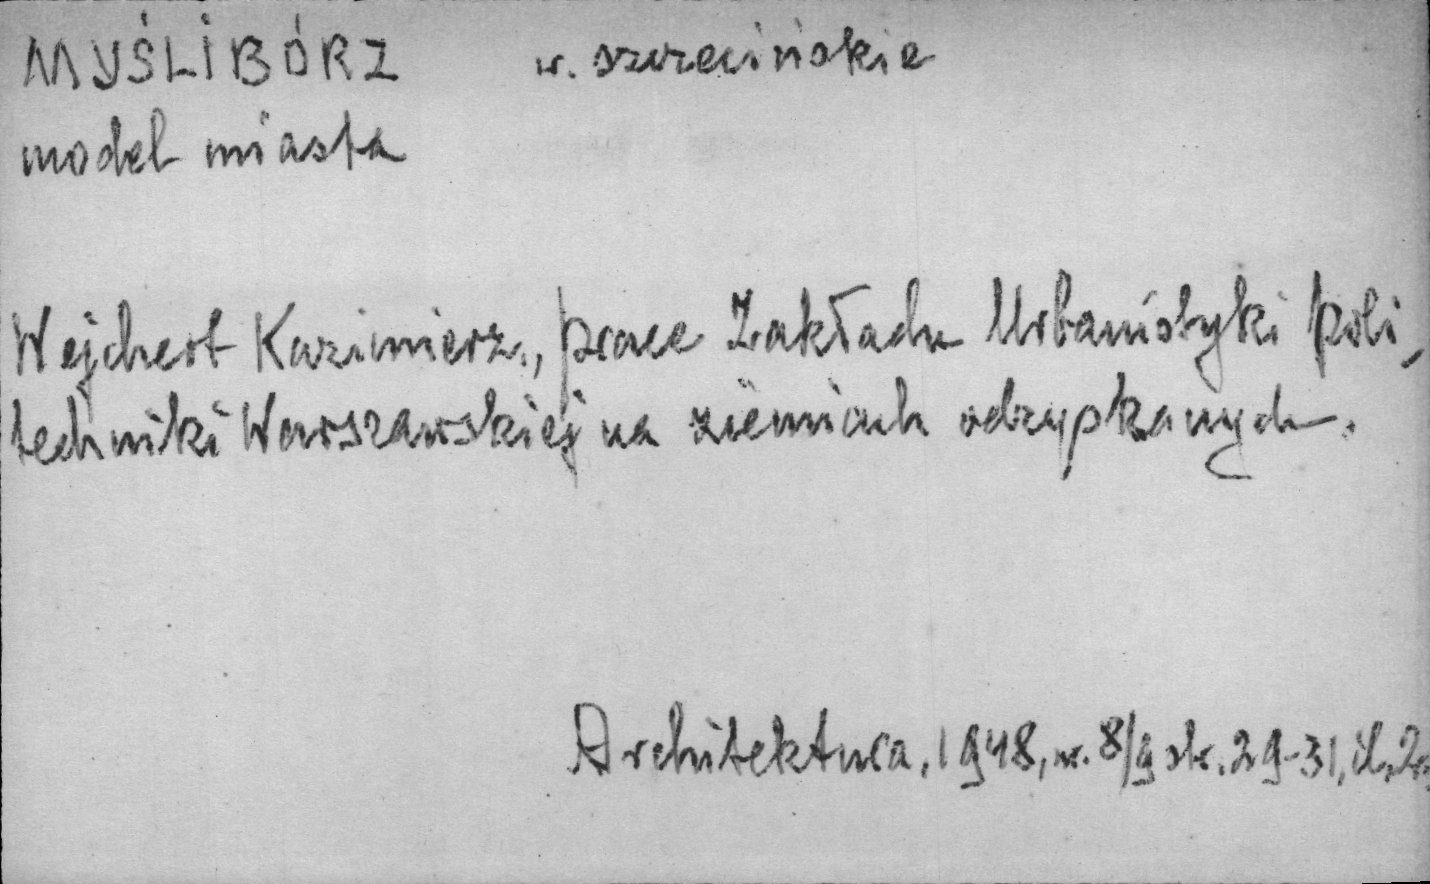 MYŚLIBÓRZ w. szczecińskie
model miasta
Wejchert Kazimierz., prace Zakładu Urbanistyki Poli-
techniki Warszawskiej na ziemiach odzyskanych.
Architektura, 1948, nr. 8/9 str. 29-31, il.